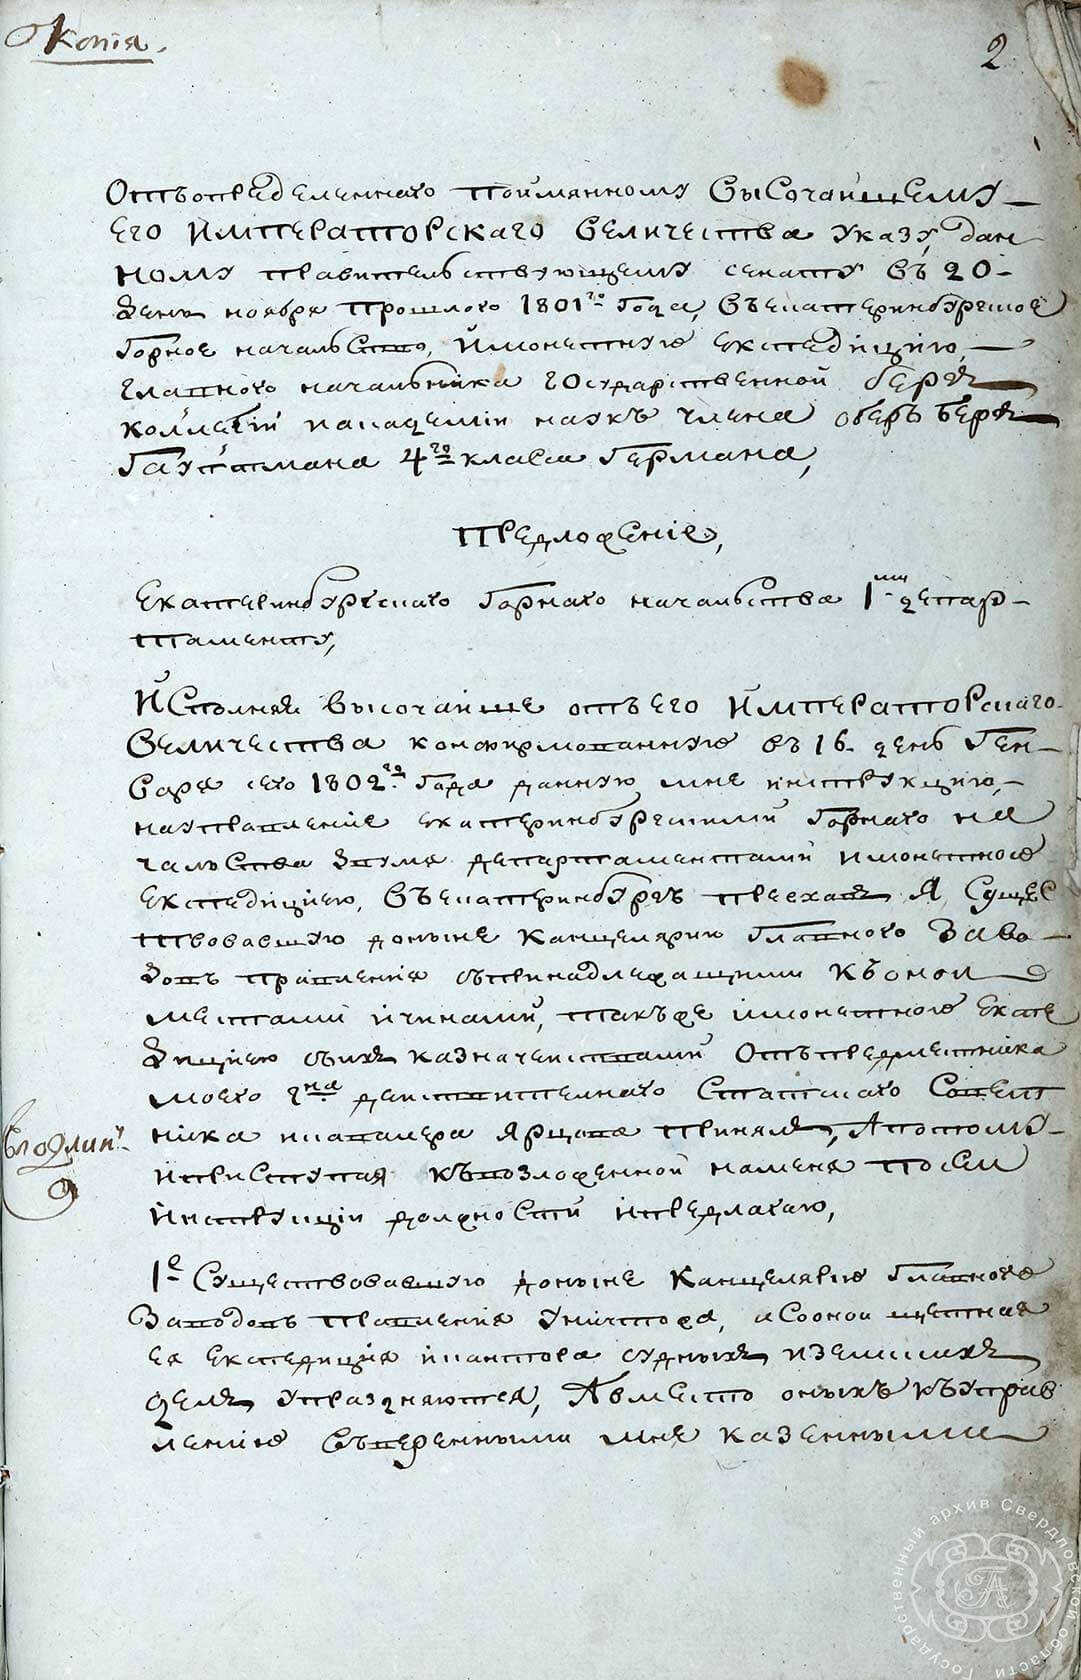 Копія.
2
Отъопределеннаго поимянному высочайшему
его императорскаго величества указу, дан
ному правительствующему сенату въ 20-
день ноября прошлого 1801го года, въекатеринбургское
горное начальство, имонетную експедицию,
главного начальника государственной бергъ
коллегіи иакадеміи наукъ члена оберъ бергъ
гауптмана 4го класа германа,
предложеніе,
Екатеринбургскаго горнаго начальства 1му депар-
таменту,
Исполняя высочайше отъего императорскаго
величества конфирмованную въ 16. день ген-
варя сего 1802го года данную мне инструкцию,
науправление екатеринбургскимъ горнаго на
чальства двумя департаментами имонетною
експедициею, въекатеринбургъ приехавъ я, сущес
твовавшую доныне канцелярию главного заво-
довъ правления съпринадлежащими къоной
местами ичинами, такъже имонетною експе
дициею съихъ казначействами отъпредместника
моего г на действителнаго статскаго совет
ника икавалера ярцова принялъ, апотому-
иприступая къвозложенной наменя посей
инструкціи должности ипредлагаю,
1е Существовавшую доныне канцелярию главнаго
заводовъ правления уничтожа, исооной щетная
ея експедиция иконтора судныхъ иземскихъ
делъ упраздняются, Авместо оныхъ къуправ
лению въверенными мне казенными
Государственный архив Свердловской области
ГА